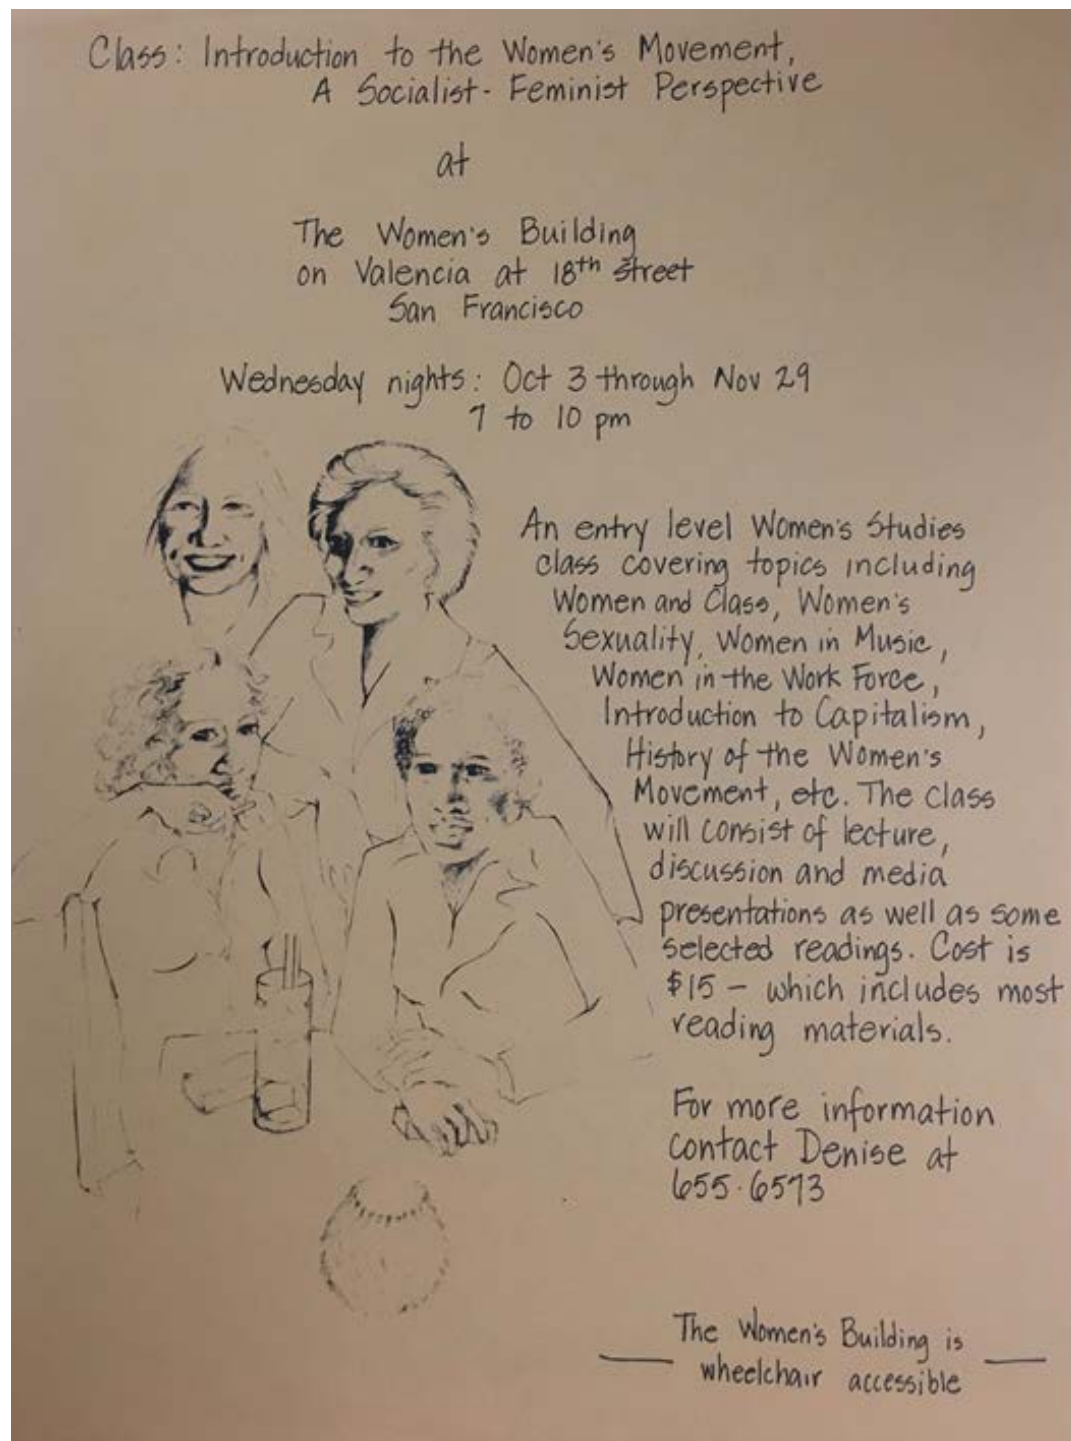 Class: Introduction to the Women's Movement,
A Socialist-Feminist Perspective
at
The Women's Building
on Valencia at 18th Street
San Francisco
Wednesday nights: Oct 3 through Nov 29
7 to 10 pm
An entry level Women's Studies
class covering topics including
Women and Class, Women's
Sexuality, Women in Music,
Women in the Work Force,
Introduction to Capitalism,
History of the Women's
Movement, etc. The class
will consist of lecture,
discussion and media
presentations as well as some
selected readings. Cost is
$15 - which includes most
reading materials.
For more information
contact Denise at
655-6573
The Women's Building is
wheelchair accessible